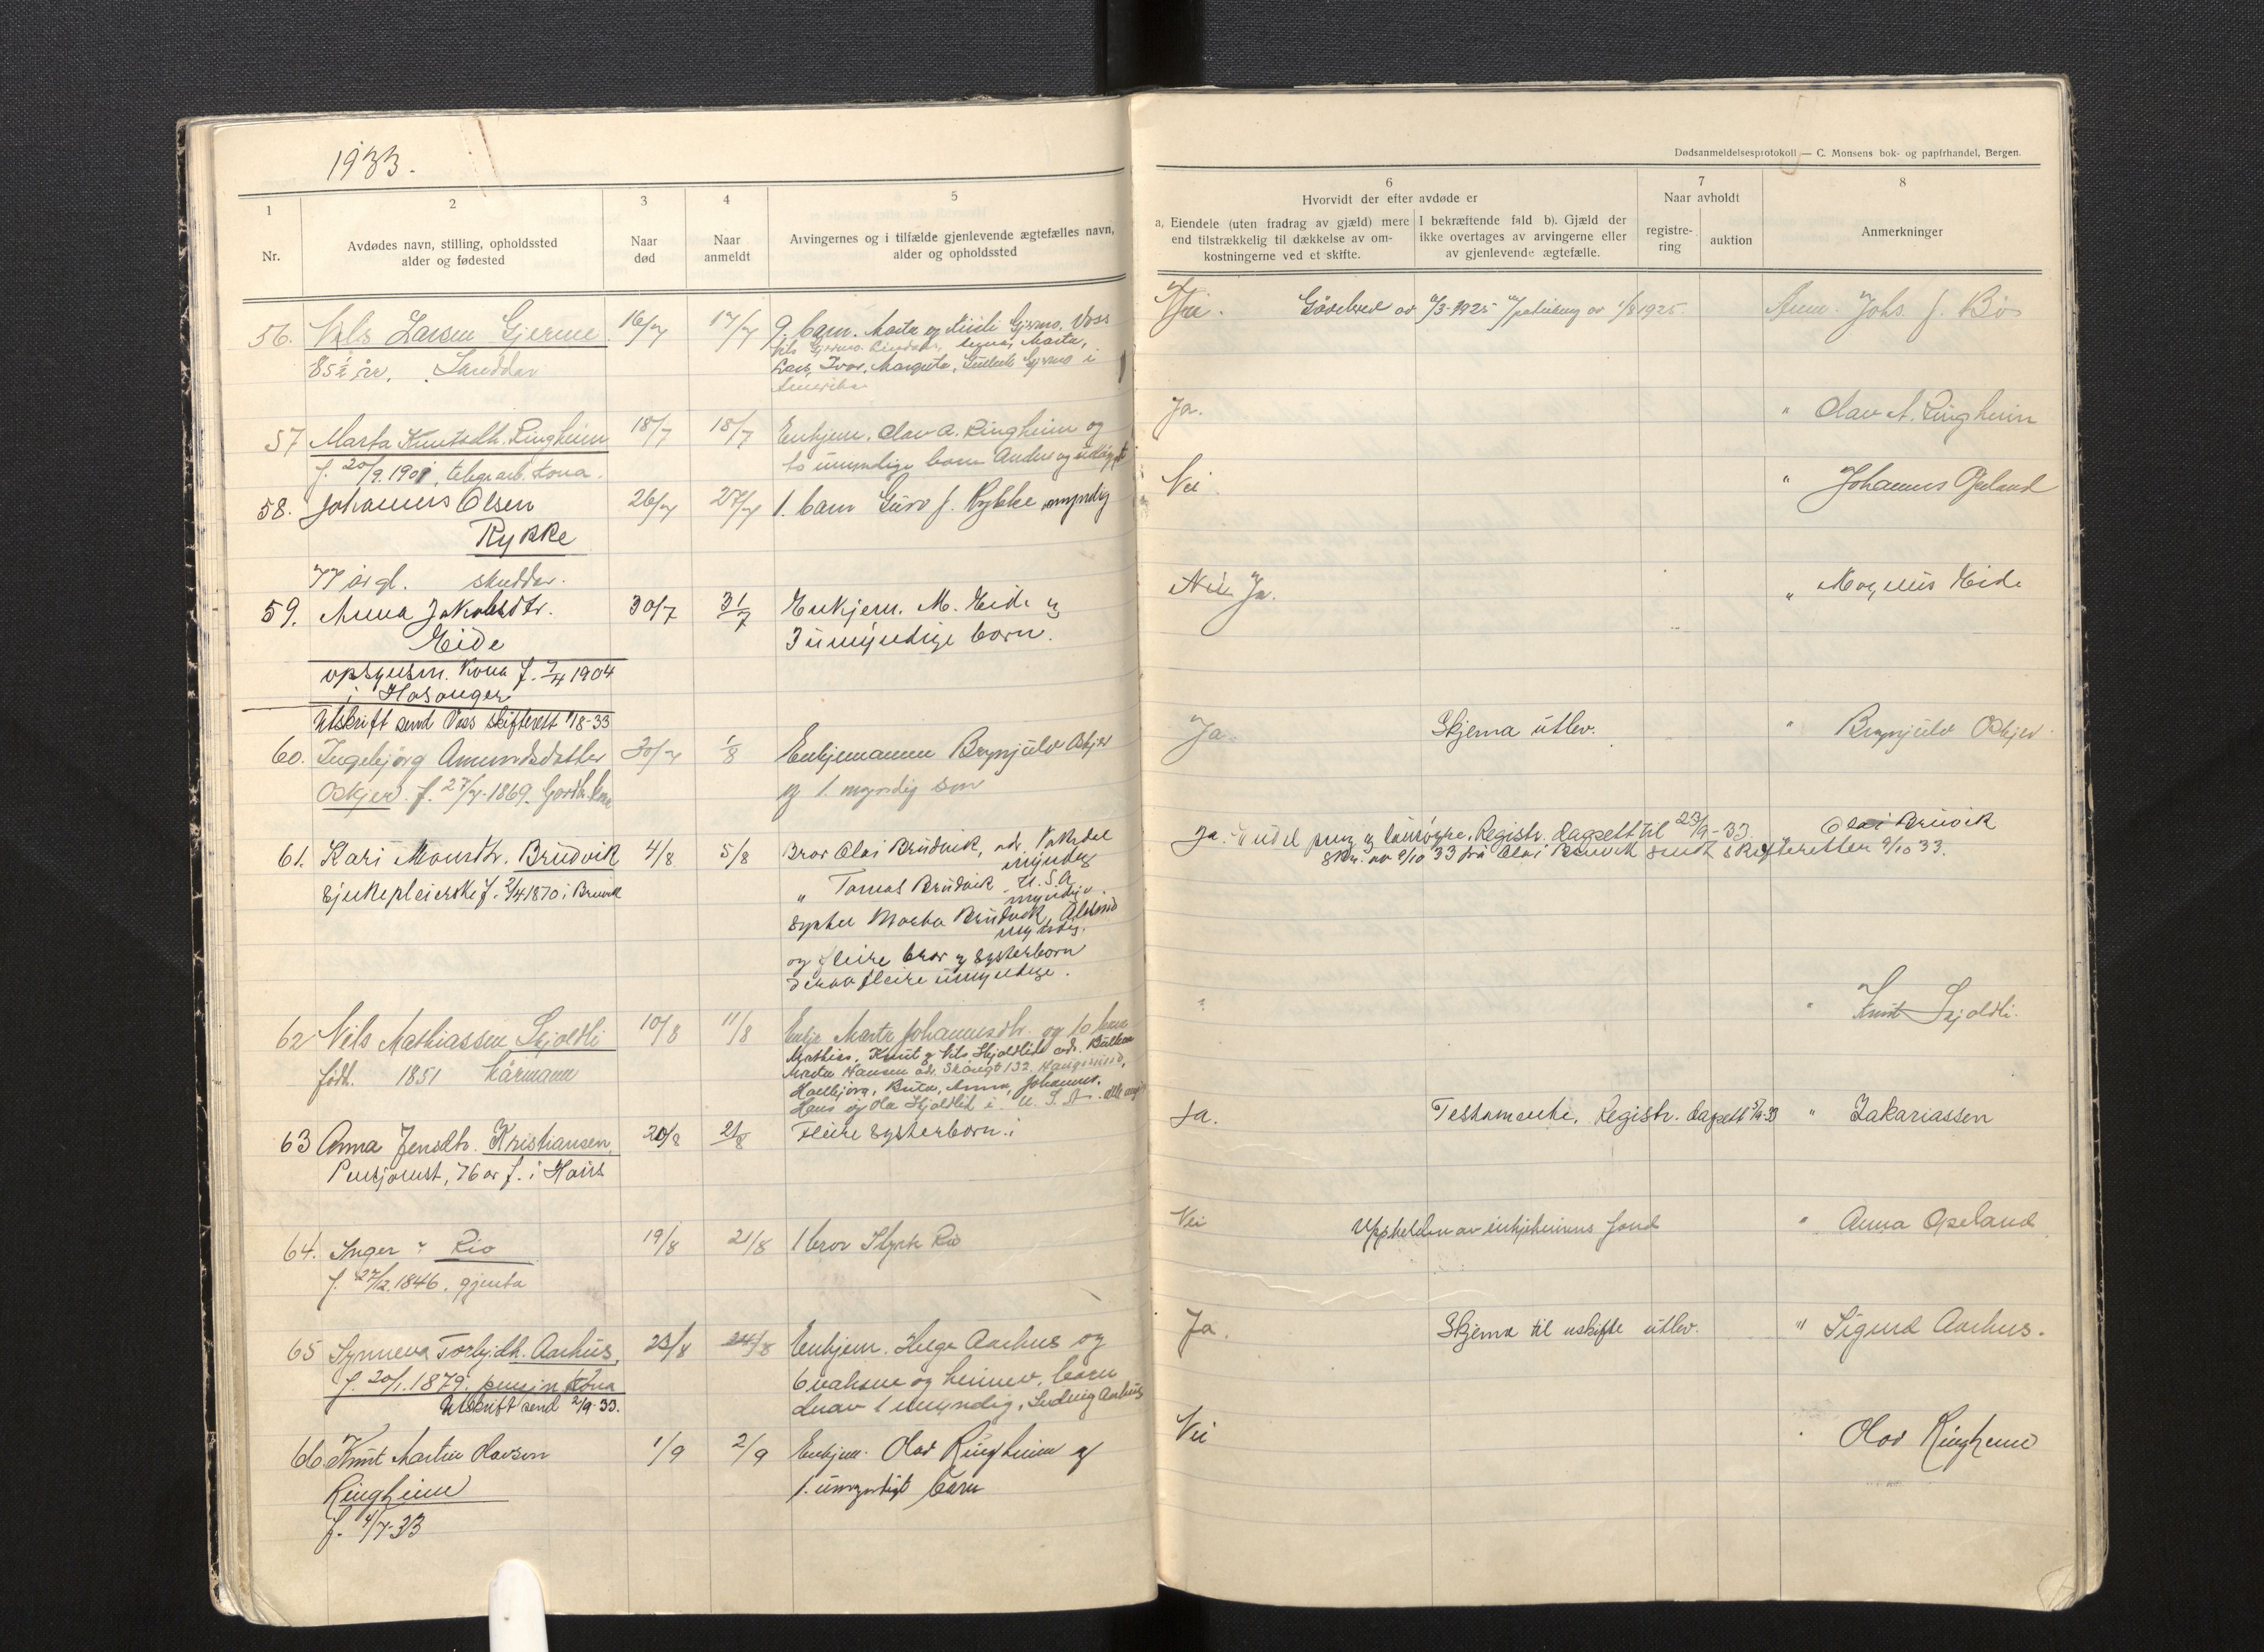 1933.
Dødsanmeldelsesprotokoll — C. Monsens bok- og papirhandel, Bergen.
1
Nr.
2
Avdødes navn, stilling, opholdssted
alder og fødested
3
Naar
død
4
Naar
anmeldt
5
Arvingernes og i tilfælde gjenlevende ægtefælles navn,
alder og opholdssted
6
Hvorvidt der efter avdøde er
a, Eiendele (uten fradrag av gjæld) mere
end tilstrækkelig til dækkelse av om-
kostningerne ved et skifte.
I bekræftende fald b). Gjæld der
ikke overtages av arvingerne eller
av gjenlevende ægtefælle.
7
Naar avholdt
registre-
ring
auktion
8
Anmerkninger
56. Nils Larsen Gjerme 16/7 17/7 9. barn. Marta og Gjermo. Voss
Gjermo. Marta,
85½ år,
Lars, Ivar, Margreta, Gjermo i
Amerika
Gåvebrev av 3-1925 av 1/8 1925. Anm. Johs. J. Bö
57 Marta Knutsdtr. Ringheim 18/7 18/7 Enkjem. Olav A. Ringheim og
f. 20/9.1901, telegr.arb. kona. to umyndige born Anders og
Ja. " Olav A. Ringheim
58. Johannes Olsen 26/7 27/7 1. barn Guro J. Rykke myndig
Rykke
77 år gl. skuddar.
Nei " Johannes Opeland
59. Anna Jakobsdtr. 30/7 31/7 Enkjem. M. Eide og
Eide 3 umyndige born.
opsynsm. kona f. 7/4 1904
i Hosanger
Utskrift send Voss skifterett 1/8-33
Nei Ja. " Magnus Eide
60. Ingebjörg Amundsdotter 30/7 1/8 Enkjemannen Brynjulv Oskjer
Oskjer. f. 27/7-1869. Gardk.kona og 1. myndig son
Ja. Skjema utlev. " Brynjulv Oskjer
61. Kari Monsdtr. Brudvik 4/8 5/8 Bror Olai Brudvik, adr. Vaksdal
myndig
sjukepleierske f. 2/4 1870 i Bruvik
" Tomas Brudvik U.S.A
myndig.
Syster Marta Brudvik,
myndig.
og fleire bror og systerborn
derav fleire umyndige.
Ja. Registr. dagsett til 23/9-33. Olai Bruvik
Skr. av 9/10 33 frå Olai Bruvik sendt skifteretten 9/10 33.
62 Nils Mathiassen Skjoldli 10/8 11/8 Enkje Marta Johannesdtr. og 10 born
Mathias, Knut og Nils Skjoldlid adr. Bulken
født. 1851 kårmann
Marta Hansen adr. Skåregt 132. Haugesund,
Hallbjörg, Brita, Anna, Johannes,
Hans og Ola Skjoldlid i U.S.A. alle
? " Knut Skjoldli.
63 Anna Jensdtr. Kristiansen, 20/8 21/8 Fleire systerborn.
Pensjonist, 76 år f. i Haus
Ja. Testamente. Registr. dagsett 5/9-33 " Zakariassen
64. Inger ? Rio 19/8 21/8 1 bror Styrk Rio
f. 27/12.1846. gjenta
Nei Uppheldin av enkjeheimens fond " Anna Opeland
65 Synneva Torbjdtr. Aarhus, 23/8 24/8 Enkjem. Helge Aarhus og
f. 20/1.1879. pensjn kona 6 vaksne og heimev. born
Utskrift send 2/9-33. derav 1 umyndig, Ludvig Aarhus
Ja. Skjema til uskifte utlev. " Sigurd Aarhus.
66. Knut Martin Olavson 1/9 2/9 Enkjem. Olav Ringheim og
Ringheim 1. umyndigt barn
f. 4/7-33
Nei " Olav Ringheim